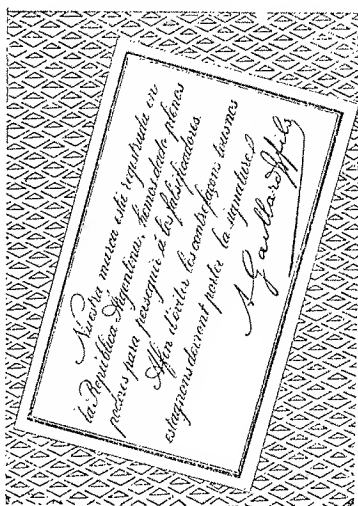 Nuestra marca está registrada en
la República Argentina, hemos dado plenos
poderes para perseguir á los falsificadores.
Afin d'éviter les contrefaçons tous mes
estagnons devront porter la signature
A. Gaillard & fils